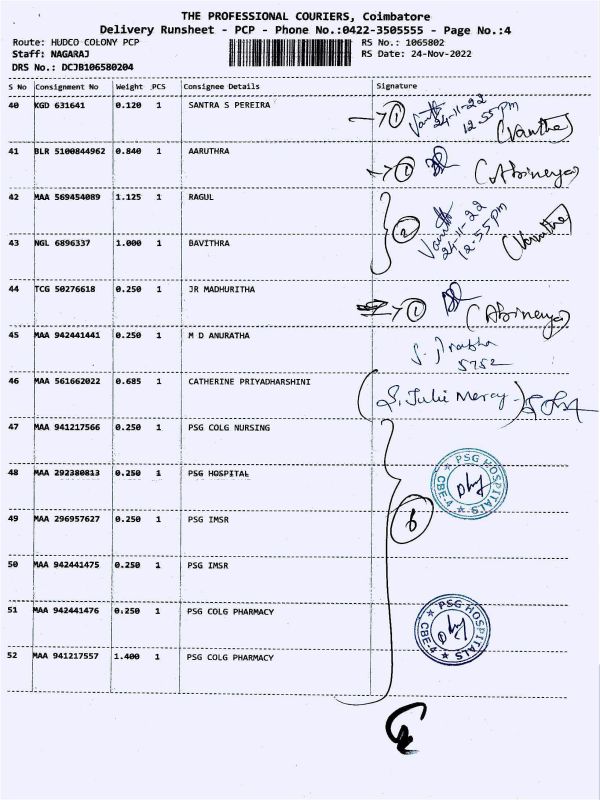 THE PROFESSIONAL COURIERS, Coimbatore
Delivery Runsheet - PCP - Phone No.:0422-3505555 - Page No.:4
Route: HUDCO COLONY PCP
RS No.: 1065802
Staff: NAGARAJ
RS Date: 24-Nov-2022
DRS No.: DCJB106580204
S No Consignment No Weight PCS Consignee Details Signature
40 KGD 631641 0.120 1 SANTRA S PEREIRA
1
24-11-22
12.55 pm
(Vanitha)
41 BLR 5100844962 0.840 1 AARUTHRA
1 (Abinaya)
42 MAA 569454089 1.125 1 RAGUL
2
24-11-22
12.55 pm
(Vanitha)
43 NGL 6896337 1.000 1 BAVITHRA
44 TCG 50276618 0.250 1 JR MADHURITHA
1 (Abinaya)
45 MAA 942441441 0.250 1 M D ANURATHA
S. Prabha
5752
46 MAA 561662022 0.685 1 CATHERINE PRIYADHARSHINI
(S. Julie Mercy)
47 MAA 941217566 0.250 1 PSG COLG NURSING
48 MAA 292380813 0.250 1 PSG HOSPITAL
PSG HOSPITALS
CBE-4
49 MAA 296957627 0.250 1 PSG IMSR
6
50 MAA 942441475 0.250 1 PSG IMSR
51 MAA 942441476 0.250 1 PSG COLG PHARMACY
PSG HOSPITALS
CBE-4
52 MAA 941217557 1.400 1 PSG COLG PHARMACY